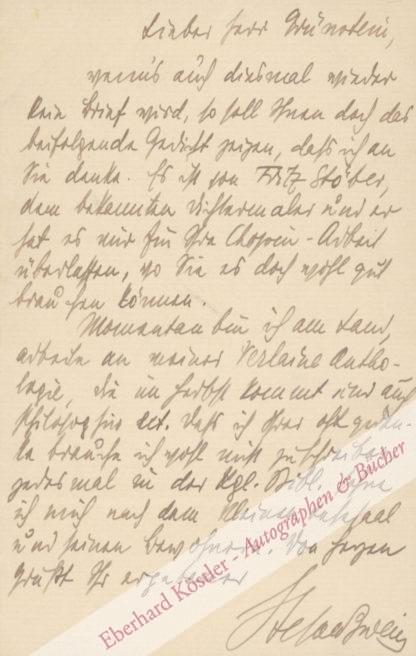 Lieber Herr Grünstein,
wenn's auch diesmal wieder
kein Brief wird, so soll Ihnen doch das
beifolgende Gedicht zeigen, daß ich an
Sie denke. Es ist von Fritz Stöber,
dem bekannten Dichtermaler und er
hat es mir für Ihre Chopin-Arbeit
überlassen, wo Sie es doch wohl gut
brauchen können.
Momentan bin ich am Land,
arbeite an meiner Verlaine Antho-
logie, die im Herbst kommt und auch
Philosophie ect. Daß ich Ihrer oft geden-
ke brauche ich wohl nicht zu schreiben
jedesmal in der Kgl. Bibl. sehne
ich mich nach dem kleinen
und seinen Bewohnern. Von Herzen
grüßt Ihr ergebener
Stefan Zweig
Eberhard Köstler - Autographen & Bücher